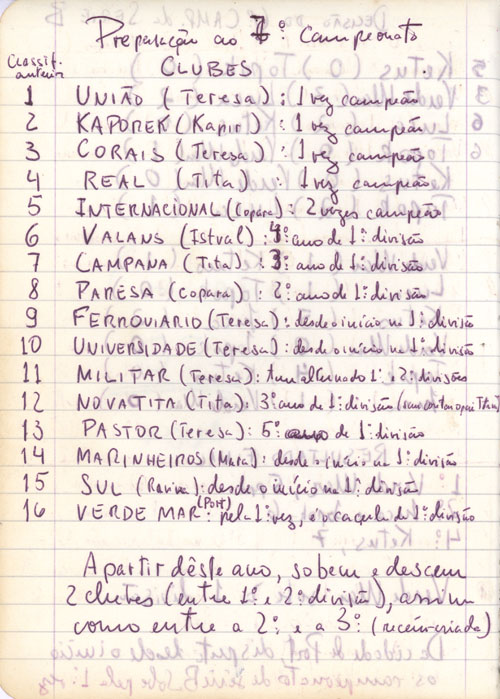 Preparação ao 7º Campeonato
Classif. anterior CLUBES
1 UNIÃO (Teresa): 1 vez campeão
2 KAPOREK (Kapir): 1 vez campeão
3 CORAIS (Teresa): 1 vez campeão
4 REAL (Tita): 1 vez campeão
5 INTERNACIONAL (Copara): 2 vezes campeão
6 VALANS (Istval): 4º ano de 1ª divisão
7 CAMPANA (Tita): 3º ano de 1ª divisão
8 PARESA (Copara): 2º ano de 1ª divisão
9 FERROVIARIO (Teresa): desde o início na 1ª divisão
10 UNIVERSIDADE (Teresa): desde o início na 1ª divisão
11 MILITAR (Teresa): tem alternado 1ª e 2ª divisões
12 NOVATITA (Tita): 3º ano de 1ª divisão (sem contar o
13 PASTOR (Teresa): 5º ano de 1ª divisão
14 MARINHEIROS (Mara): desde o início na 1ª divisão
15 SUL (Ravina): desde o início na 1ª divisão
16 VERDE MAR (Port): pela 1ª vez, é o caçula de 1ª divisão
A partir dêste ano, sobem e descem
2 clubes (entre 1ª e 2ª divisão), assim
como entre a 2ª e a 3ª (recém-criada)